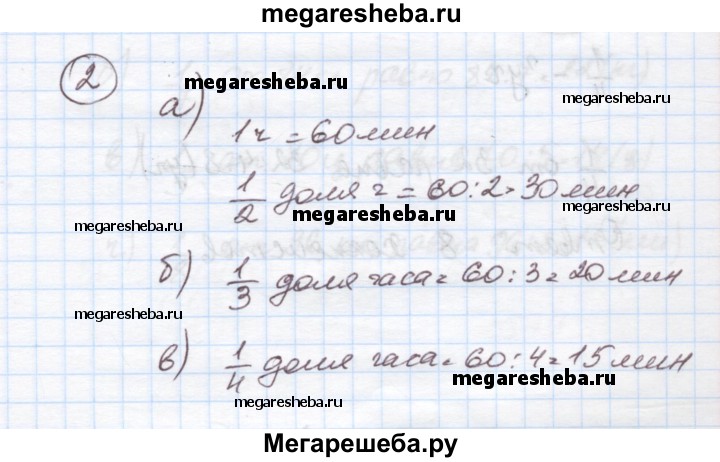 megaresheba.ru
2
megaresheba.ru
а)
1ч = 60 мин
megaresheba.ru
1/2 доля ч = 60:2 = 30 мин
megaresheba.ru
megaresheba.ru
megaresheba.ru
б) 1/3 доля часа = 60:3 = 20 мин
megaresheba.ru
в) 1/4 доля часа = 60:4 = 15 мин
megaresheba.ru
megaresheba.ru
Мегарешеба.ру